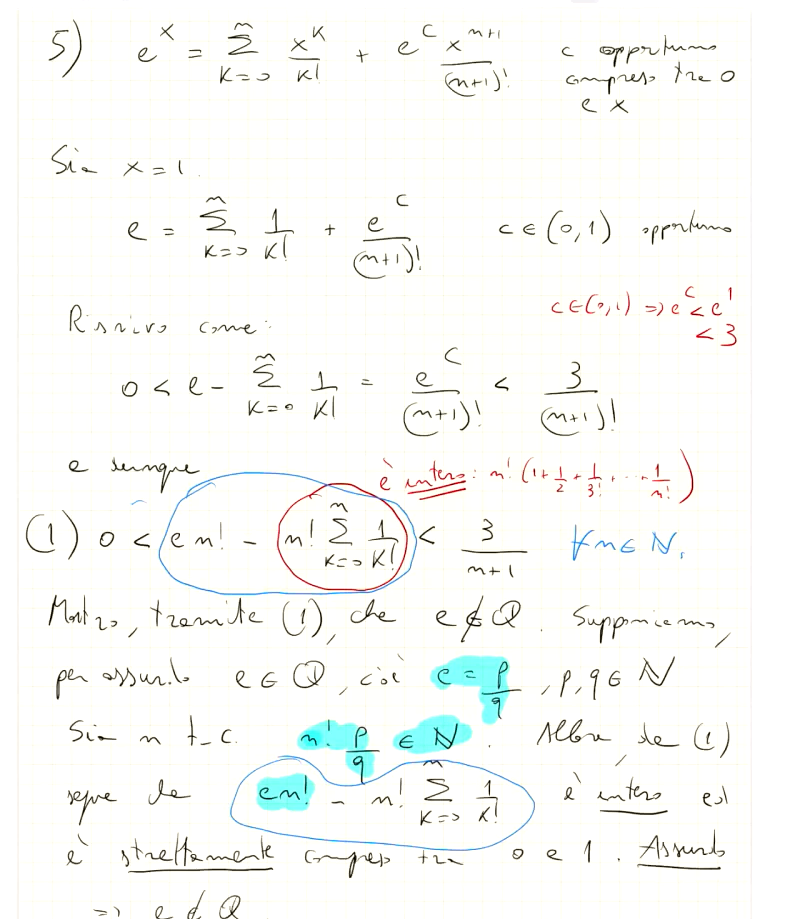 5) e^x = Σ_{k=0}^{n} x^k/k! + e^c x^{n+1}/(n+1)! c opportuno
compreso tra 0
e x
Sia x = 1.
e = Σ_{k=0}^{n} 1/k! + e^c/(n+1)! c ∈ (0,1) opportuno
c ∈ (0,1) => e^c < e^1
< 3
Riscrivo come:
0 < e - Σ_{k=0}^{n} 1/k! = e^c/(n+1)! < 3/(n+1)!
e dunque è intero: n! (1 + 1/2 + 1/3! + ... + 1/n!)
(1) 0 < e n! - n! Σ_{k=0}^{n} 1/k! < 3/(n+1) ∀ n ∈ N.
Mostro, tramite (1), che e ∉ Q. Supponiamo,
per assurdo e ∈ Q, cioè e = p/q, p, q ∈ N
Sia n t.c. n! p/q ∈ N. Allora, da (1)
segue che en! - n! Σ_{k=0}^{n} 1/k! è intero ed
è strettamente compreso tra 0 e 1. Assurdo
=> e ∉ Q